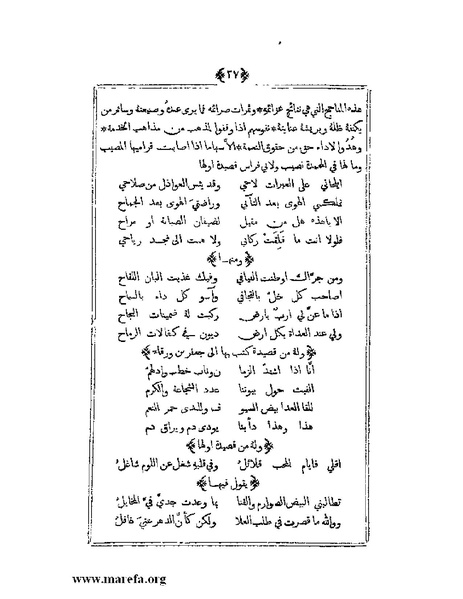 ﴿ ٢٧ ﴾
هذه المناجح التي هي نتائج عزائمه وثمرات صرائمه فما يرى عبده وصنيعته وسائر من
يكنفه ظله ويريشه عنايته نفوسهم اذا وقفوا لمذهب من مذاهب الخدمة
وهدوا لاداء حق من حقوق النعمة الا سهاما اذا اصابت فراميها المصيب
وما لها في المحمدة نصيب ولابي فراس قصيدة اولها
ايلحاني على العبرات لاحي وقد يئس العواذل من صلاحي
تملكني الهوى بعد التأبي وراضني الهوى بعد الجماح
الا يا هذه هل من مقيل لضيفان الصبابة او مراح
فلولا انت ما قلقت ركابي ولا هبت الى نجد رياحي
﴿ ومنها ﴾
ومن جراك اوطنت الفيافي وفيك غذيت البان اللقاح
اصاحب كل خل بالتجافي وآسو كل داء بالسماح
اذا ما عن لي ارب بارض ركبت له ضمينات النجاح
ولي عند العداة بكل ارض ديون في كفالات الرماح
﴿ وله من قصيدة كتب بها الى جعفر بن ورقاء ﴾
أنا اذا اشتد الزما ن وناب خطب وادلهم
الفيت حول بيوتنا عدد الشجاعة والكرم
للقا العدا بيض السيو ف وللندى حمر النعم
هذا وهذا دأبنا يودى دم ويراق دم
﴿ وله من قصيدة اولها ﴾
اقلي فايام المحب قلائل وفي قلبه شغل عن اللوم شاغل
﴿ يقول فيها ﴾
تطالبني البيض الصوارم والقنا بما وعدت جدي في المخايل
ووالله ما قصرت في طلب العلا ولكن كأن الدهر عني غافل
www.marefa.org